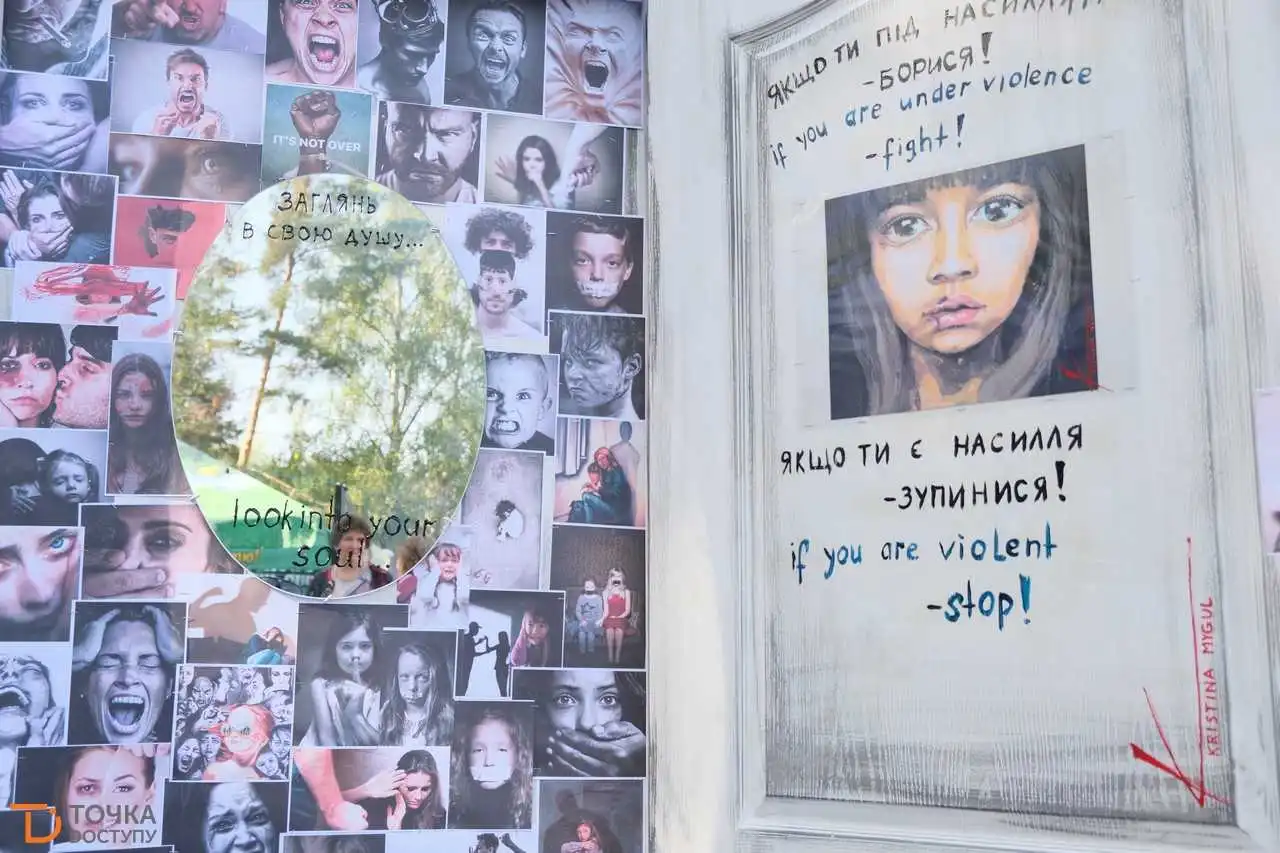 IT'S NOT OVER
ЗАГЛЯНЬ
В СВОЮ ДУШУ...
look into your
soul...
ЯКЩО ТИ ПІД НАСИЛЛЯМ
-БОРИСЯ!
if you are under violence
-fight!
ЯКЩО ТИ Є НАСИЛЛЯ
-ЗУПИНИСЯ!
if you are violent
-stop!
KRISTINA MYGUL
ТОЧКА
ДОСТУПУ